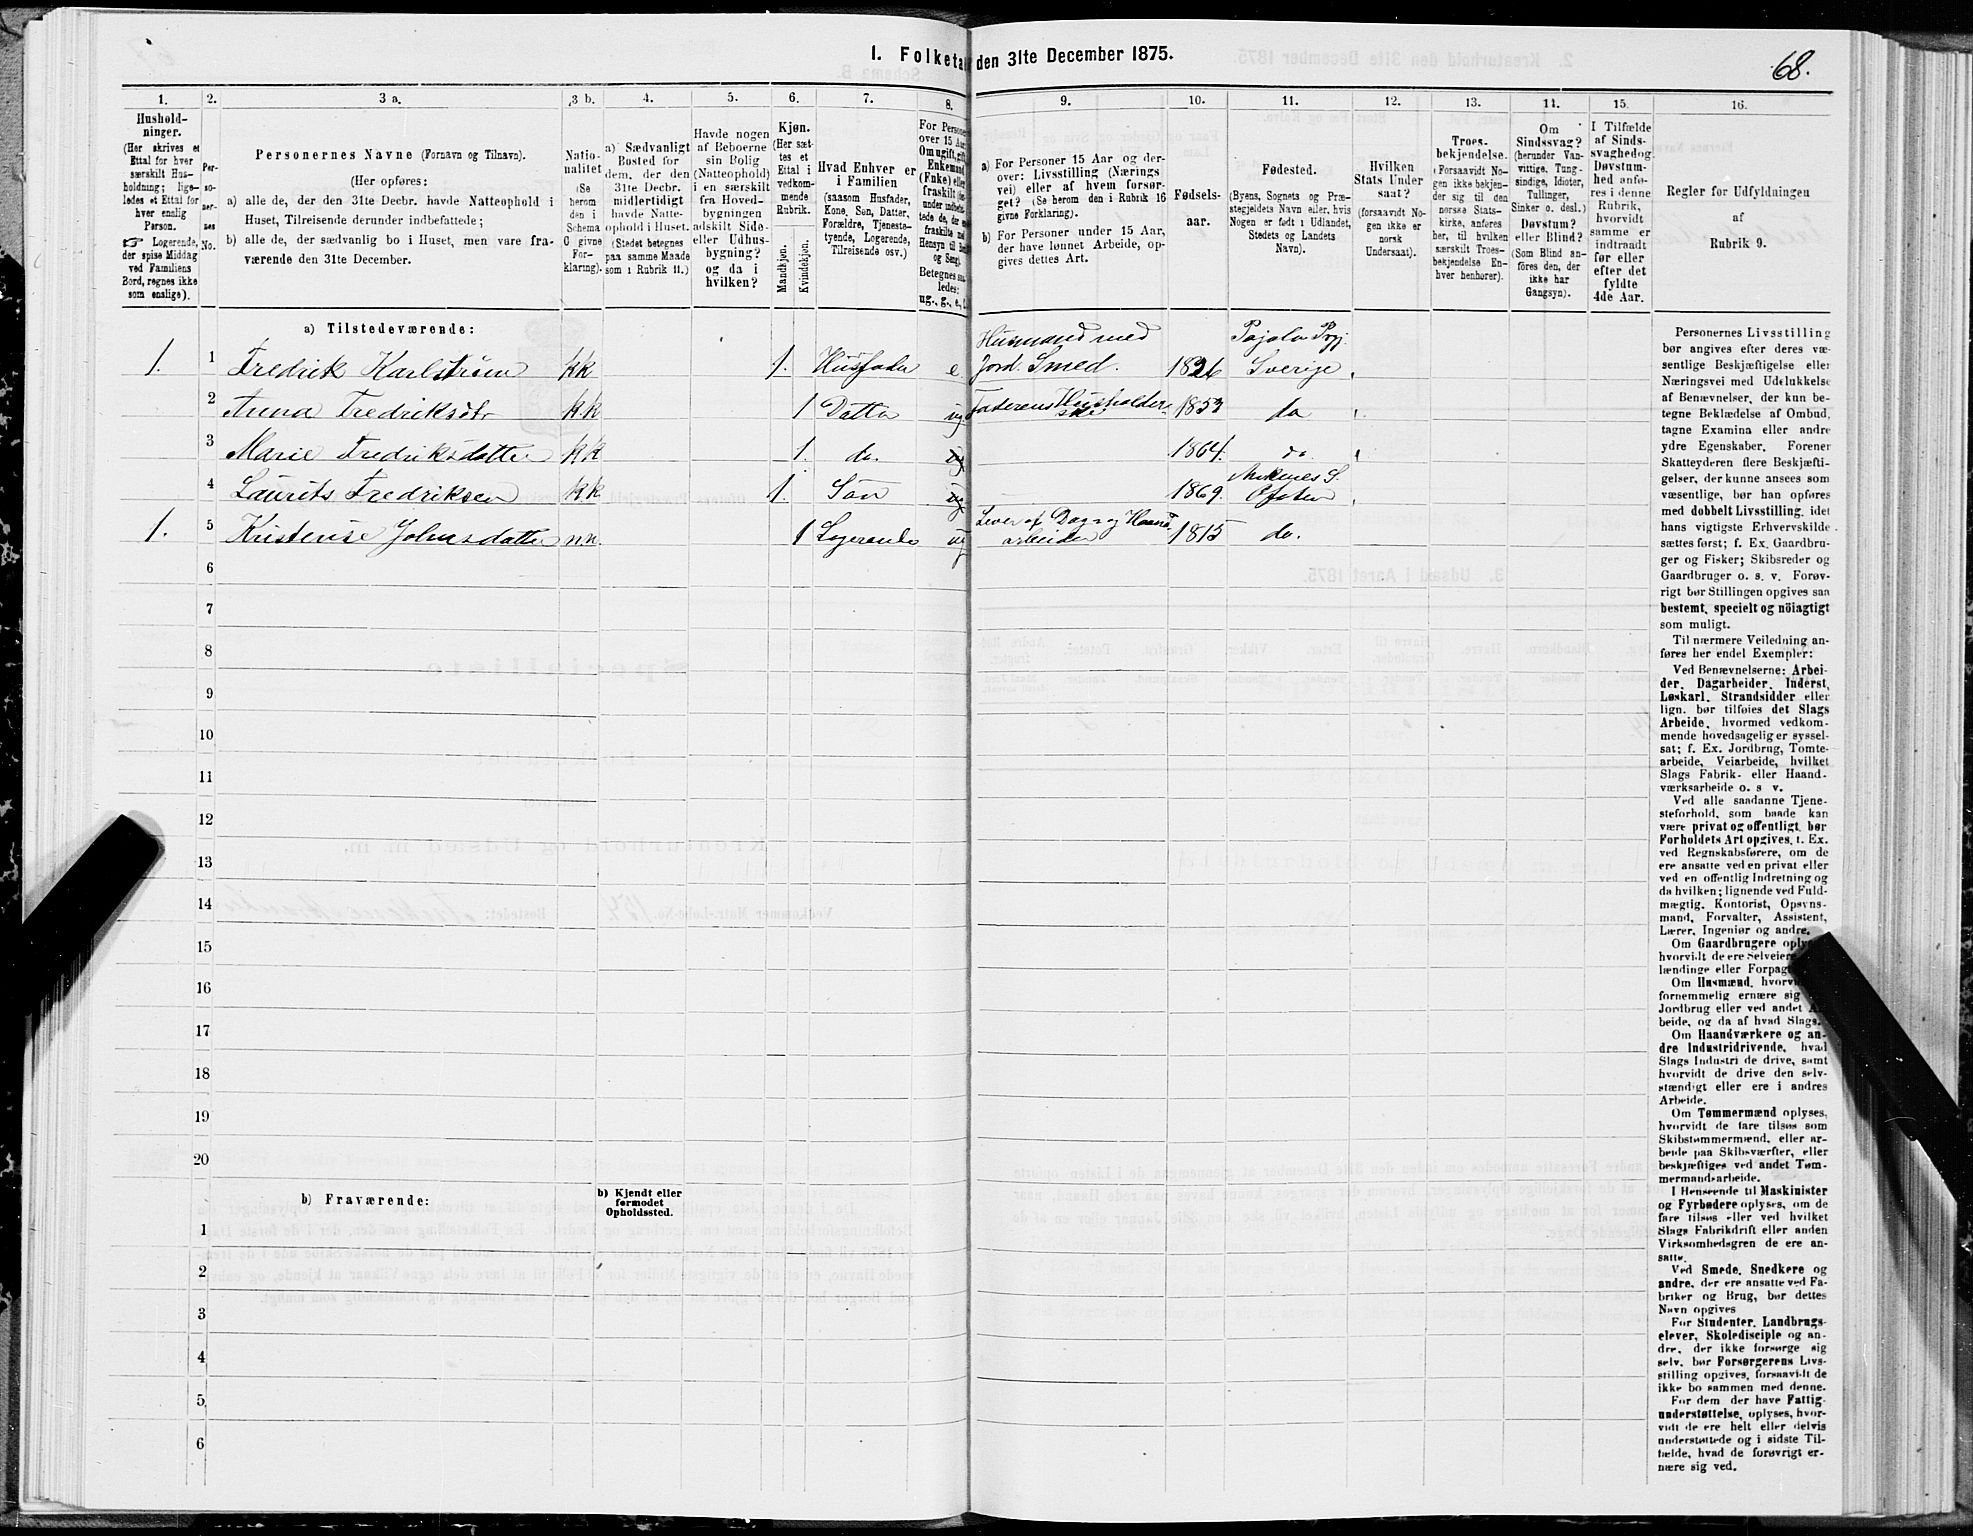 1. Folketæ den 31te December 1875.
68.
1.
2.
3 a.
3 b.
4.
5.
6.
7.
8.
9.
10.
11.
12.
13.
14.
15.
16.
Hushold-
ninger.
(Her skrives et
Ettal for hver
særskilt Hus-
holdning; lige-
ledes et Ettal for
hver enslig
Person.
☞ Logerende,
der spise Middag
ved Familiens
Bord, regnes ikke
som enslige).
Per-
so-
ner-
nes
No.
Personernes Navne (Fornavn og Tilnavn).
(Her opføres:
a) alle de, der den 31te Decbr. havde Natteophold i
Huset, Tilreisende derunder indbefattede;
b) alle de, der sædvanlig bo i Huset, men vare fra-
værende den 31te December.
Natio-
nalitet
(Se
herom
den i
Schema
C givne
For-
klaring).
a) Sædvanligt
Bosted for
dem, der den
31te Decbr.
midlertidigt
havde Natte-
ophold i Huset.
(Stedet betegnes
paa samme Maade
som i Rubrik 11.)
Havde nogen
af Beboerne
sin Bolig
(Natteophold)
i en særskilt
fra Hoved-
bygningen
adskilt Side-
eller Udhus-
bygning?
og da i
hvilken?
Kjøn.
(Her sæt-
tes et
Ettal i
vedkom-
mende
Rubrik.
Mandkjøn.
Kvindekjøn.
Hvad Enhver er
i Familien
(saasom Husfader,
Kone, Søn, Datter,
Forældre, Tjeneste-
tyende, Logerende,
Tilreisende osv.)
For Persone
over 15 Aar
Om ugift, gift
Enkemand
(Enke) eller
fraskilt
Betegnes saa-
ledes:
ug., g., e.,
a) For Personer 15 Aar og der-
over: Livsstilling (Nærings
vei) eller af hvem forsør-
get? (Se herom den i Rubrik 16
givne Forklaring).
b) For Personer under 15 Aar,
der have lønnet Arbeide, op-
gives dettes Art.
Fødsels-
aar.
Fødested.
(Byens, Sognets og Præ-
stegjeldets Navn eller, hvis
Nogen er født i Udlandet,
Stedets og Landets
Navn).
Hvilken
Stats Under
saat?
(forsaavidt No-
gen ikke er
norsk
Undersaat).
Troes-
bekjendelse.
(Forsaavidt No-
gen ikke bekjen-
der sig til den
norske Stats-
kirke, anføres
her, til hvilken
særskilt Troes-
bekjendelse En-
hver henhører).
Om
Sindssvag?
(herunder Van-
vittige, Tung-
sindige, Idioter,
Tullinger,
Sinker o. desl.)
Døvstum?
eller Blind?
(Som Blind an-
føres den, der
ikke har
Gangsyn).
I Tilfælde
af Sinds-
svaghed og
Døvstum-
hed anfø-
res i denne
Rubrik,
hvorvidt
samme er
indtraadt
før eller
efter det
fyldte
4de Aar.
Regler for Udfyldningen
af
Rubrik 9.
a) Tilstedeværende:
1. 1 Fredrik Karlstrøm kk 1. Husfader e. Husmand med Jord. Smed. 1826 Sverige
2 Anna Fredriksdtr kk 1 Datter ug Faderens Husholderske 1853 do
3 Marie Fredriksdatter kk 1. do. ug 1864. do
4 Laurits Fredriksen kk 1. Søn ug 1869. Ankenes S. Ofoten
1. 5 Kristense Johnsdatter nn. 1 Logerende ug Lever af Dag og Haandarbeide 1815 do.
6
7
8
9
10
11
12
13
14
15
16
17
18
19
20
b) Fraværende:
b) Kjendt eller
formodet
Opholdssted.
1
2
3
4
5
6
Personernes Livsstilling
bør angives efter deres væ-
sentlige Beskjæftigelse eller
Næringsvei med Udelukkelse
af Benævnelser, der kun be-
tegne Beklædelse af Ombud,
tagne Examina eller andre
ydre Egenskaber. Forener
Skatteyderen flere Beskjæfti-
gelser, der kunne ansees som
væsentlige, bør han opføres
med dobbelt Livsstilling, idet
hans vigtigste Erhvervskilde
sættes først; f. Ex. Gaardbru-
ger og Fisker; Skibsreder og
Gaardbruger o. s. v. Forøv-
rigt bør Stillingen opgives saa
bestemt, specielt og nöiagtigt
som muligt.
Til nærmere Veiledning an-
føres her endel Exempler:
Ved Benævnelserne: Arbei-
der, Dagarbeider, Inderst,
Løskarl, Strandsidder eller
lign. bør tilføies det Slags
Arbeide, hvormed vedkom-
mende hovedsagelig er syssel-
sat; f. Ex. Jordbrug, Tomte-
arbeide, Veiarbeide, hvilket
Slags Fabrik- eller Haand-
værksarbeide o. s v.
Ved alle saadanne Tjene-
steforhold, som baade kan
være privat og offentligt, bør
Forholdets Art opgives, t. Ex.
ved Regnskabsførere, om de
ere ansatte ved en privat eller
ved en offentlig Indretning og
da hvilken; lignende ved Fuld-
mægtig, Kontorist, Opsyns-
mand, Forvalter, Assistent,
Lærer, Ingeniør og andre.
Om Gaardbrugere oply
hvorvidt de ere Selveiere
lændinge eller Forpag
Om Husmænd, hvorvi
fornemmelig ernære sig
Jordbrug eller ved andet A
beide, og da af hvad Slags.
Om Haandværkere og an-
dre Industridrivende, hvad
Slags Industri de drive, samt
hvorvidt de drive den selv-
stændigt eller ere i andres
Arbeide.
Om Tømmermænd oplyses,
hvorvidt de fare tilsøs som
Skibstømmermænd, eller ar-
beide paa Skibsværfter, eller
beskjæftiges ved andet Tøm-
mermandsarbeide.
I Henseende til Maskinister
og Fyrbødere oplyses, om de
fare tilsøs eller ved hvilket
Slags Fabrikdrift eller anden
Virksomhedsgren de ere an-
satte.
Ved Smede, Snedkere og
andre, der ere ansatte ved Fa-
briker og Brug, bør dettes
Navn opgives
For Studenter, Landbrugs-
elever, Skoledisciple og an-
dre, der ikke forsørge sig
selv, bør Forsørgerens Livs-
stilling opgives, forsaavidt de
ikke bo sammen med denne.
For dem der have Fattig-
understøttelse, oplyses, hvor-
vidt de ere helt eller delvis
understøttede og i sidste Til-
fælde, hvad de forøvrigt er-
nære sig ved.